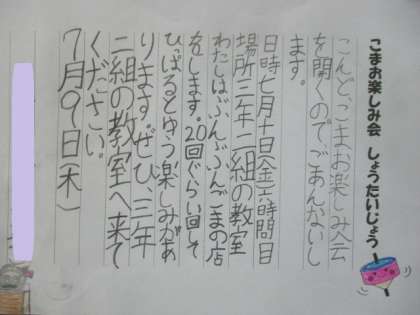 こまお楽しみ会 しょうたいじょう
こんど、こまお楽しみ会
を開くのでごあんないし
ます。
日時七月十日(金)六時間目
場所三年二組の教室
わたしは、ぶんぶんごまの店
をします。20回ぐらい回して
ひっぱるとゆう楽しみがあ
ります。ぜひ、三年
二組の教室へ来て
ください。
7月9日(木)